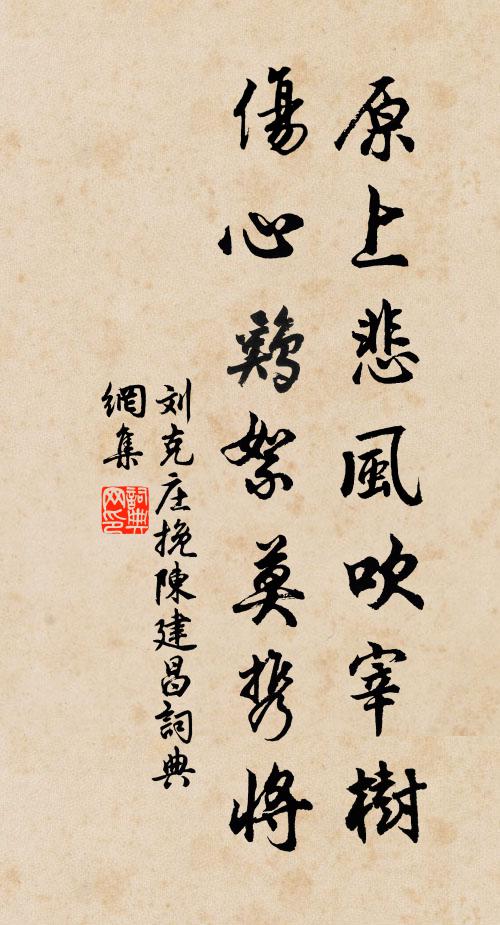 原上悲風吹宰樹
傷心鷄絮莫携將
刘克庄挽陳建昌詞典
網集
詞典
网印